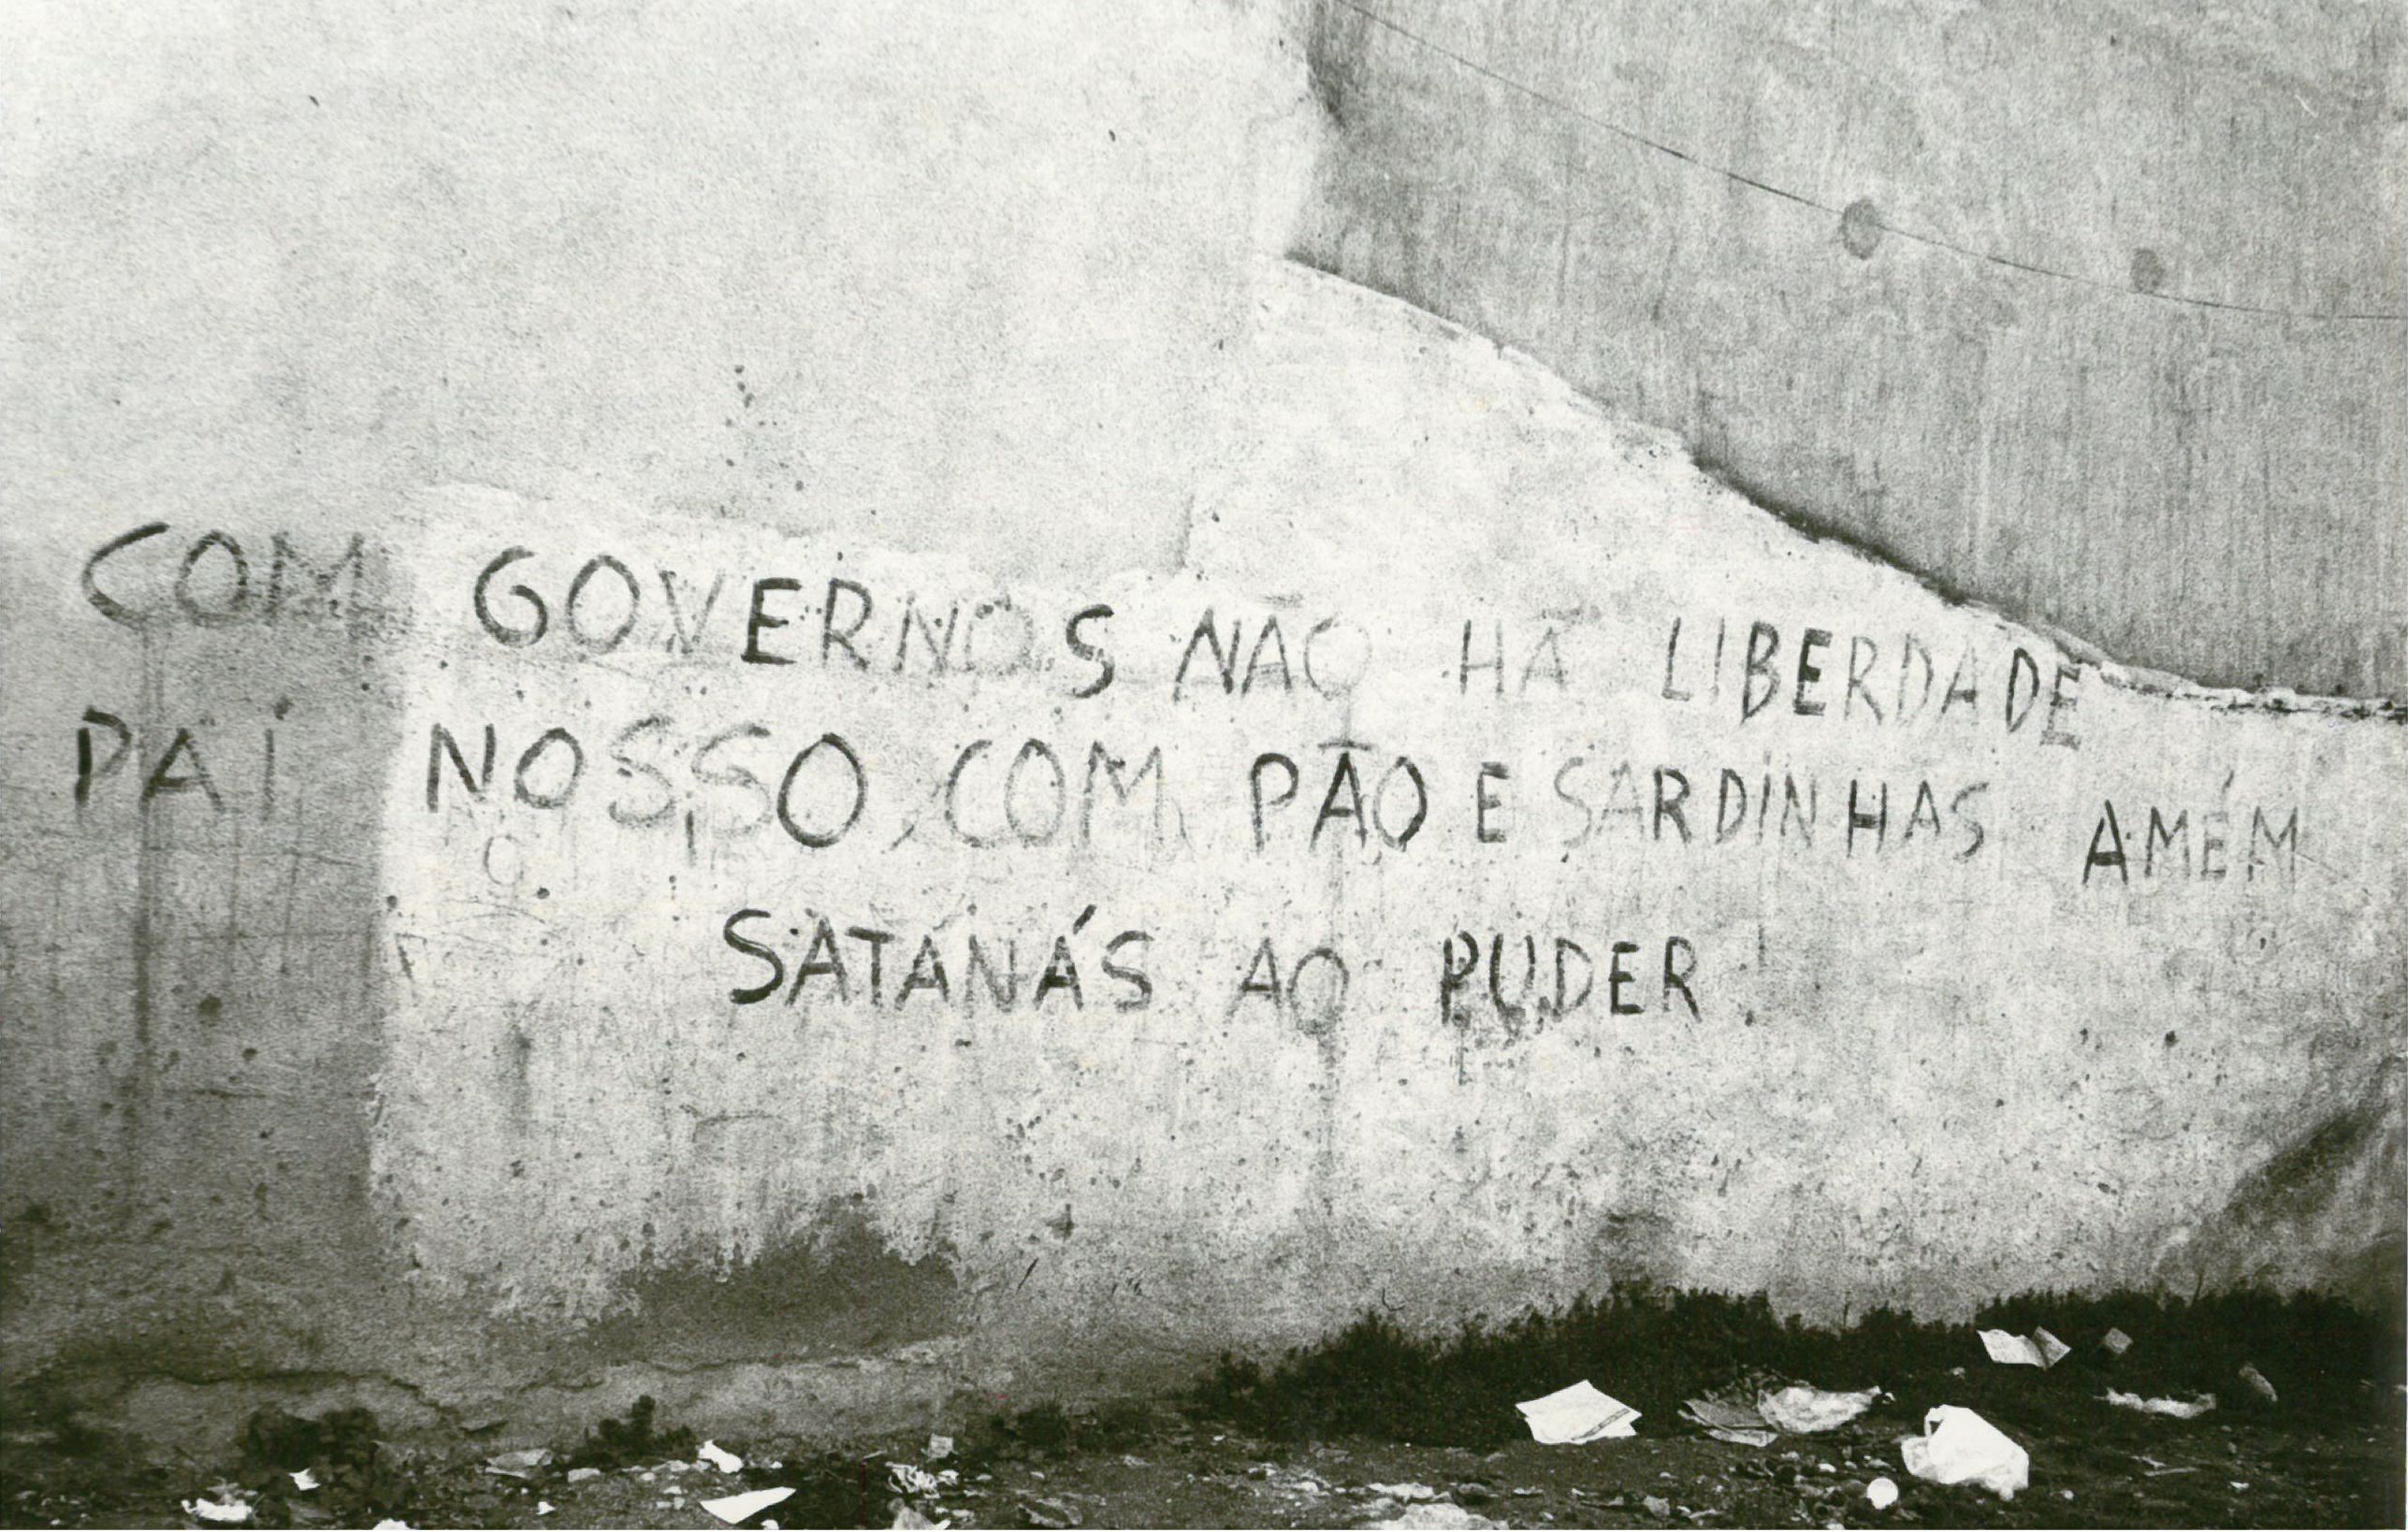 COM GOVERNOS NÃO HÁ LIBERDADE
PAI NOSSO, COM PÃO E SARDINHAS AMÉM
SATANÁS AO PUDER!